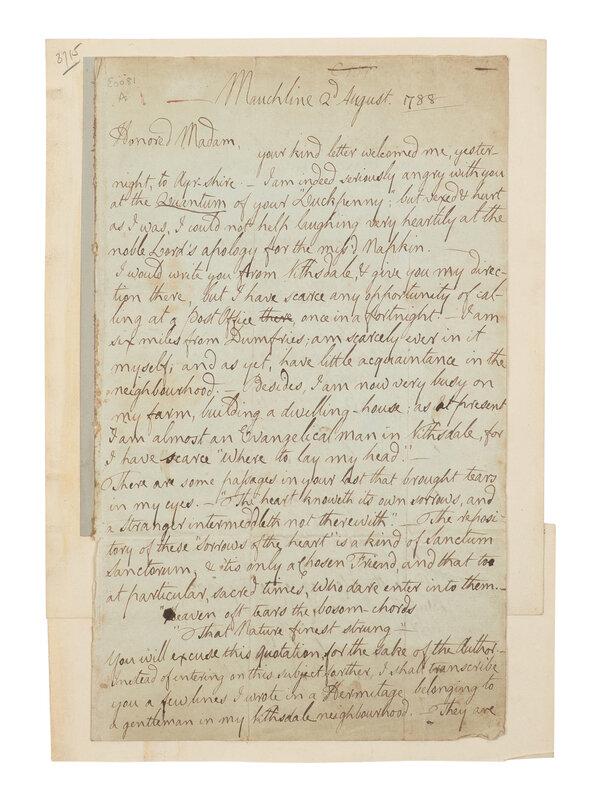 3715
Mauchline 2d August. 1788
Honored Madam,
your kind letter welcomed me, yester-
night, to Ayr-shire. — I am indeed seriously angry with you
at the Quantum of your "Luckpenny"; but vexed & hurt
as I was, I could not help laughing very heartily at the
noble Lord's apology for the miss'd Napkin. —
I would write you from Nithsdale, & give you my direc-
tion there, but I have scarce any opportunity of cal-
ling at a Post Office there, once in a fortnight. — I am
six miles from Dumfries; am scarcely ever in it
myself; and as yet, have little acquaintance in the
neighbourhood. — Besides, I am now very busy on
my farm, building a dwelling-house; as at present
I am almost an Evangelical man in Nithsdale, for
I have scarce "Where to lay my head." —
There are some passages in your last that brought tears
in my eyes. — "The heart knoweth its own sorrows, and
a Stranger intermeddleth not therewith". — The reposi-
tory of these "Sorrows of the heart" is a kind of Sanctum
Sanctorum, & 'tis only a Chosen Friend, and that too
at particular, sacred times, who dare enter into them. —
"Heaven oft tears the bosom-chords
"That Nature finest strung" —
You will excuse this quotation for the sake of the Author. —
Instead of entering on this subject farther, I shall transcribe
you a few lines I wrote in a Hermitage belonging to
a gentleman in my Nithsdale neighbourhood. — They are